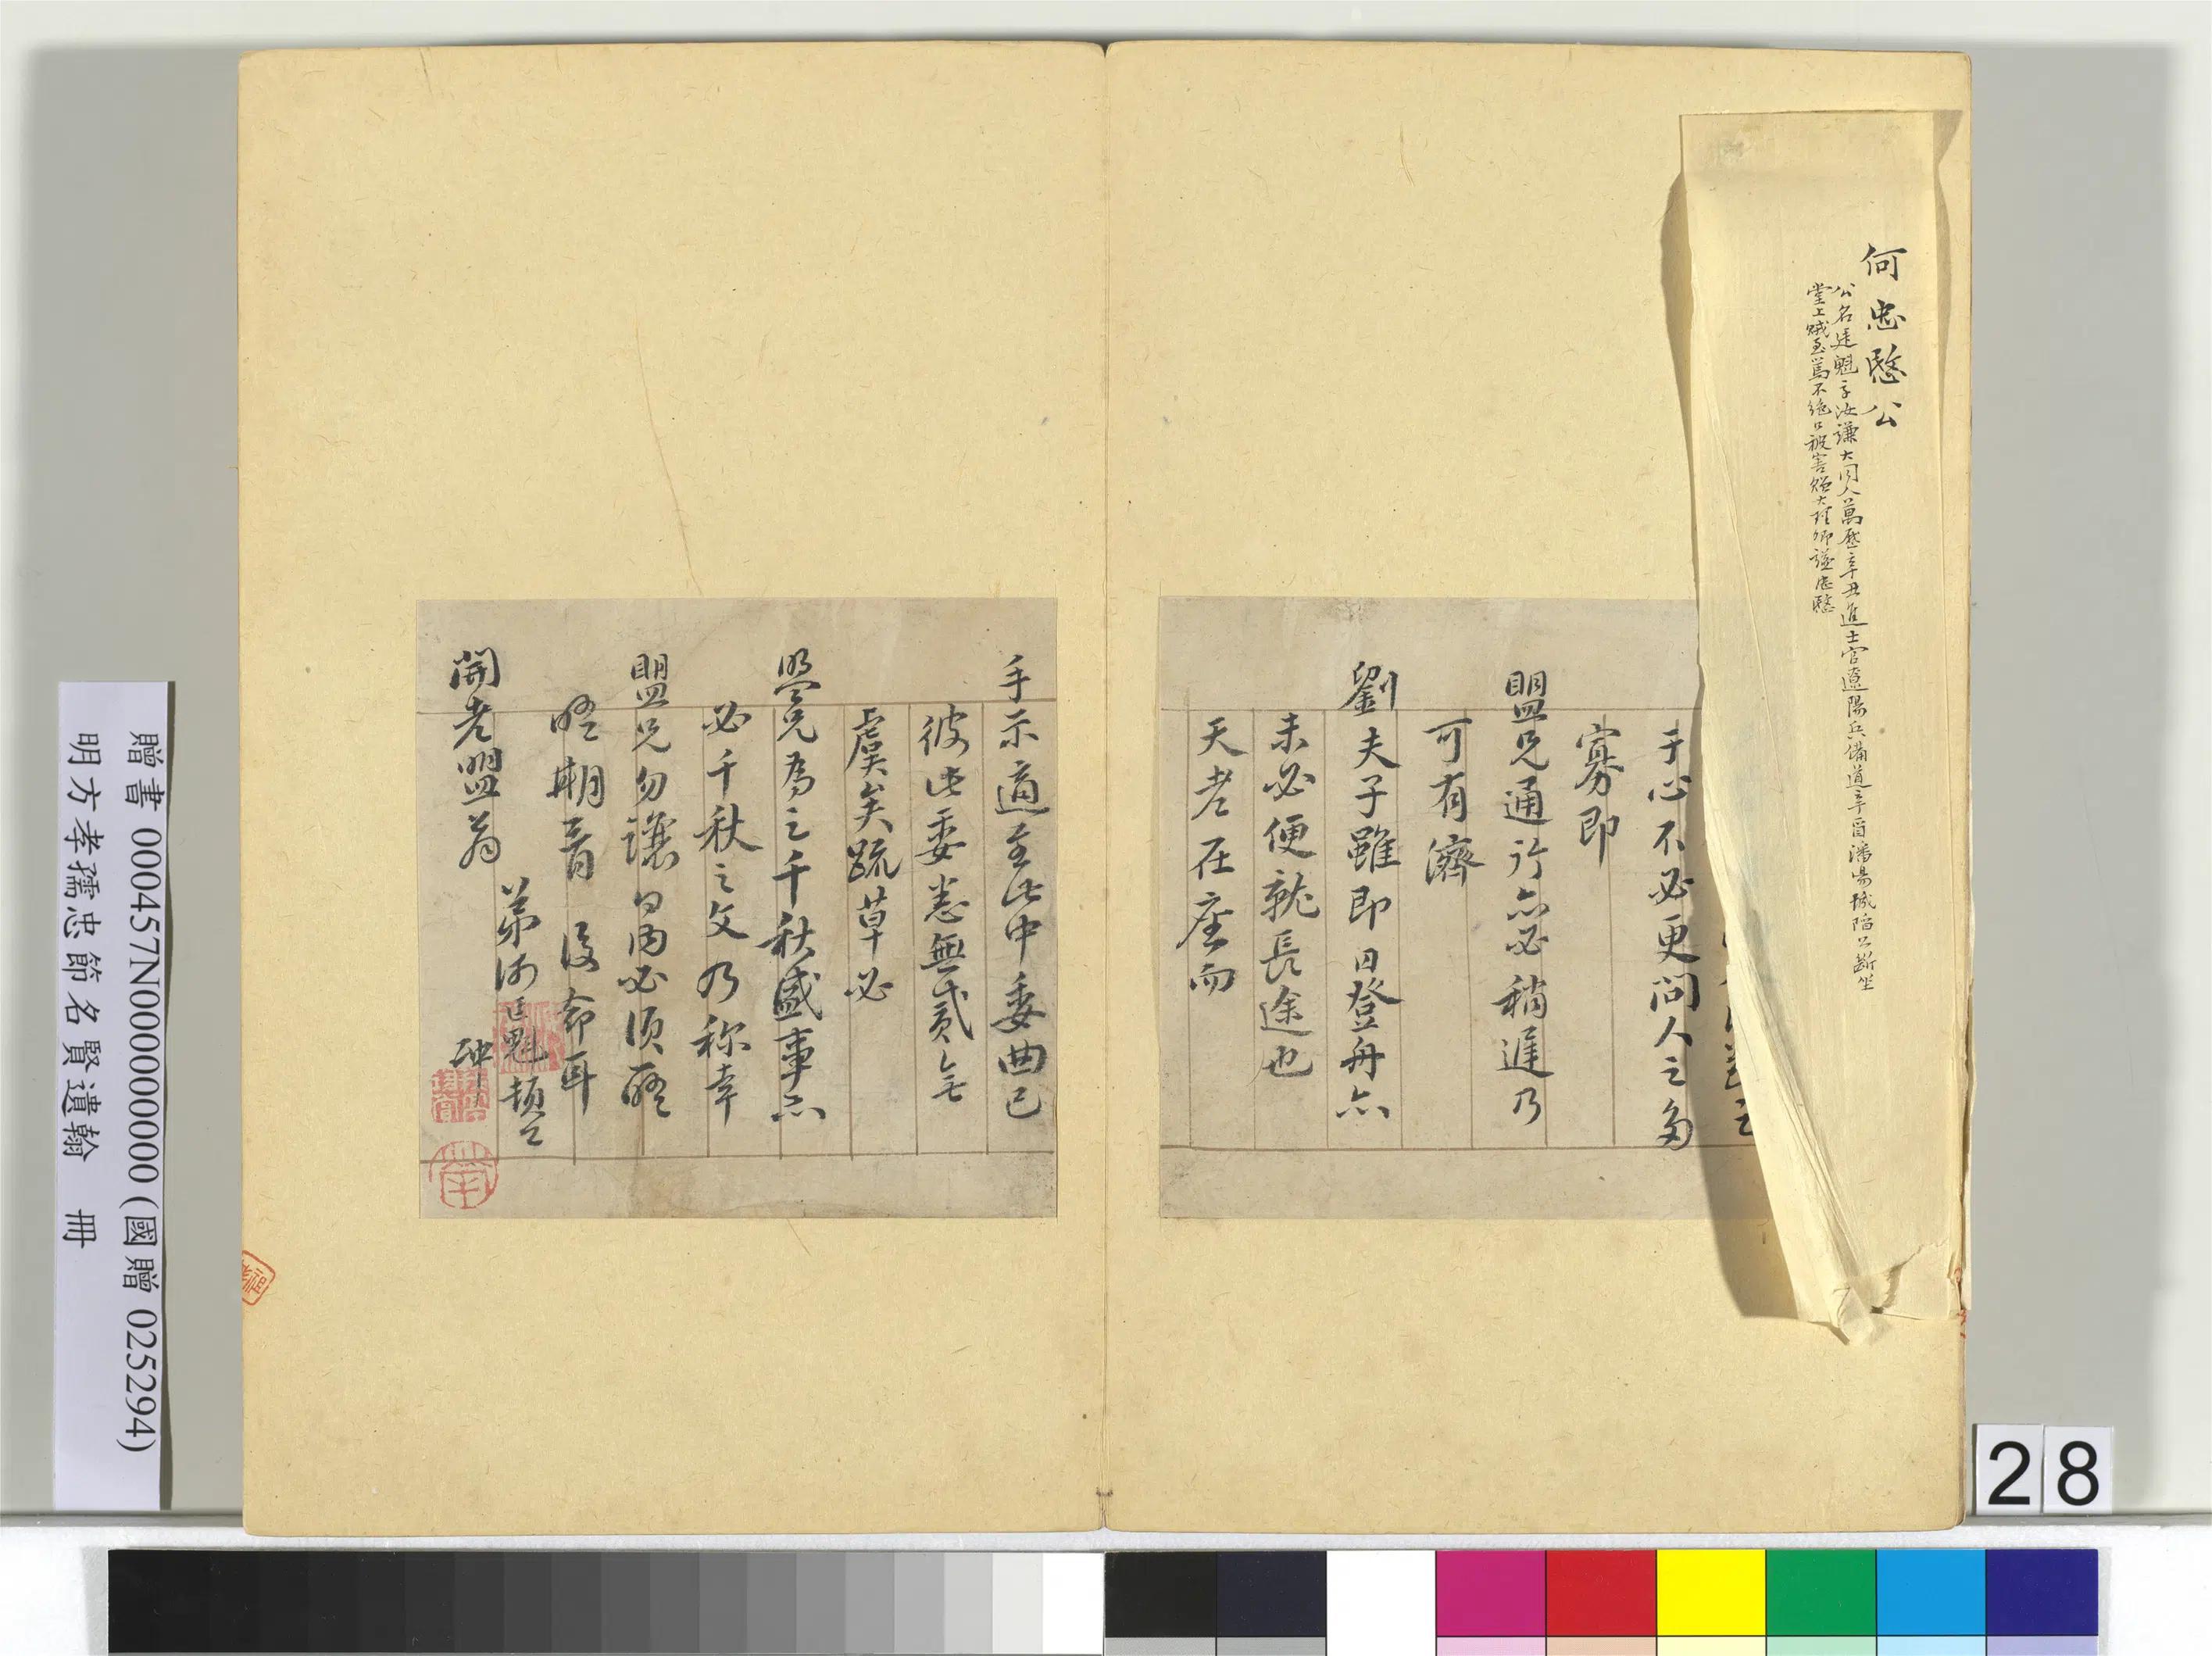 何忠愍公
公名廷魁字汝謙大同人萬歷辛丑進士官遼陽兵備道辛酉瀋陽城陷公斷坐
堂上賊至罵不絕口被害贈大理卿諡忠愍
于心不必更問人之多
寡即
盟兄通行亦必稍遲乃
可有濟
劉夫子雖即日登舟亦
未必便就長途也
天老在座而
手示適至此中委曲已
彼此委悉無貳無
虞矣疏草必
盟兄為之千秋盛事亦
必千秋之文乃称幸
盟兄勿讓日內必須
晤期音後命耳
弟何廷魁頓
開老盟翁
冲
贈書 000457N000000000 (國贈 025294)
明方孝孺忠節名賢遺翰 冊
28